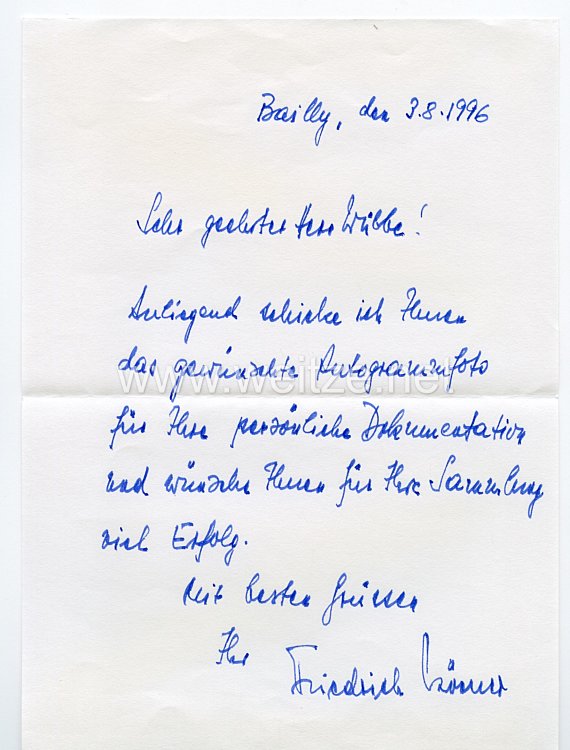 Bailly, den 3.8.1996
Sehr geehrter Herr Wübbe!
Anliegend schicke ich Ihnen
das gewünschte Autogrammfoto
www.weitze.net
für Ihre persönliche Dokumentation
und wünsche Ihnen für Ihre Sammlung
viel Erfolg.
Mit besten Grüssen
Ihr Friedrich Körner